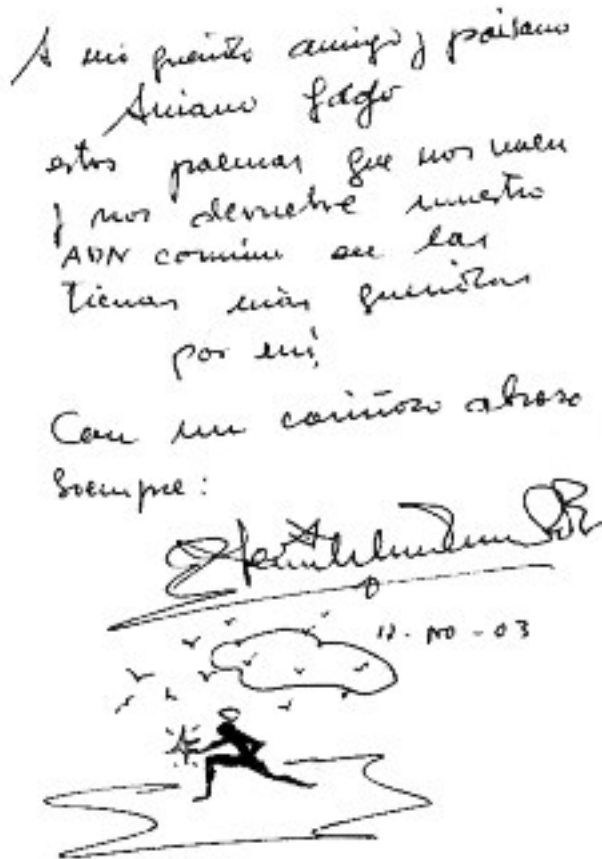 A mi querido amigo y paisano
Aniano Gago
estos poemas que nos unen
y nos devuelve nuestro
ADN común en las
tierras más queridas
por mí,
Con un cariñoso abrazo
Siempre:
- 03